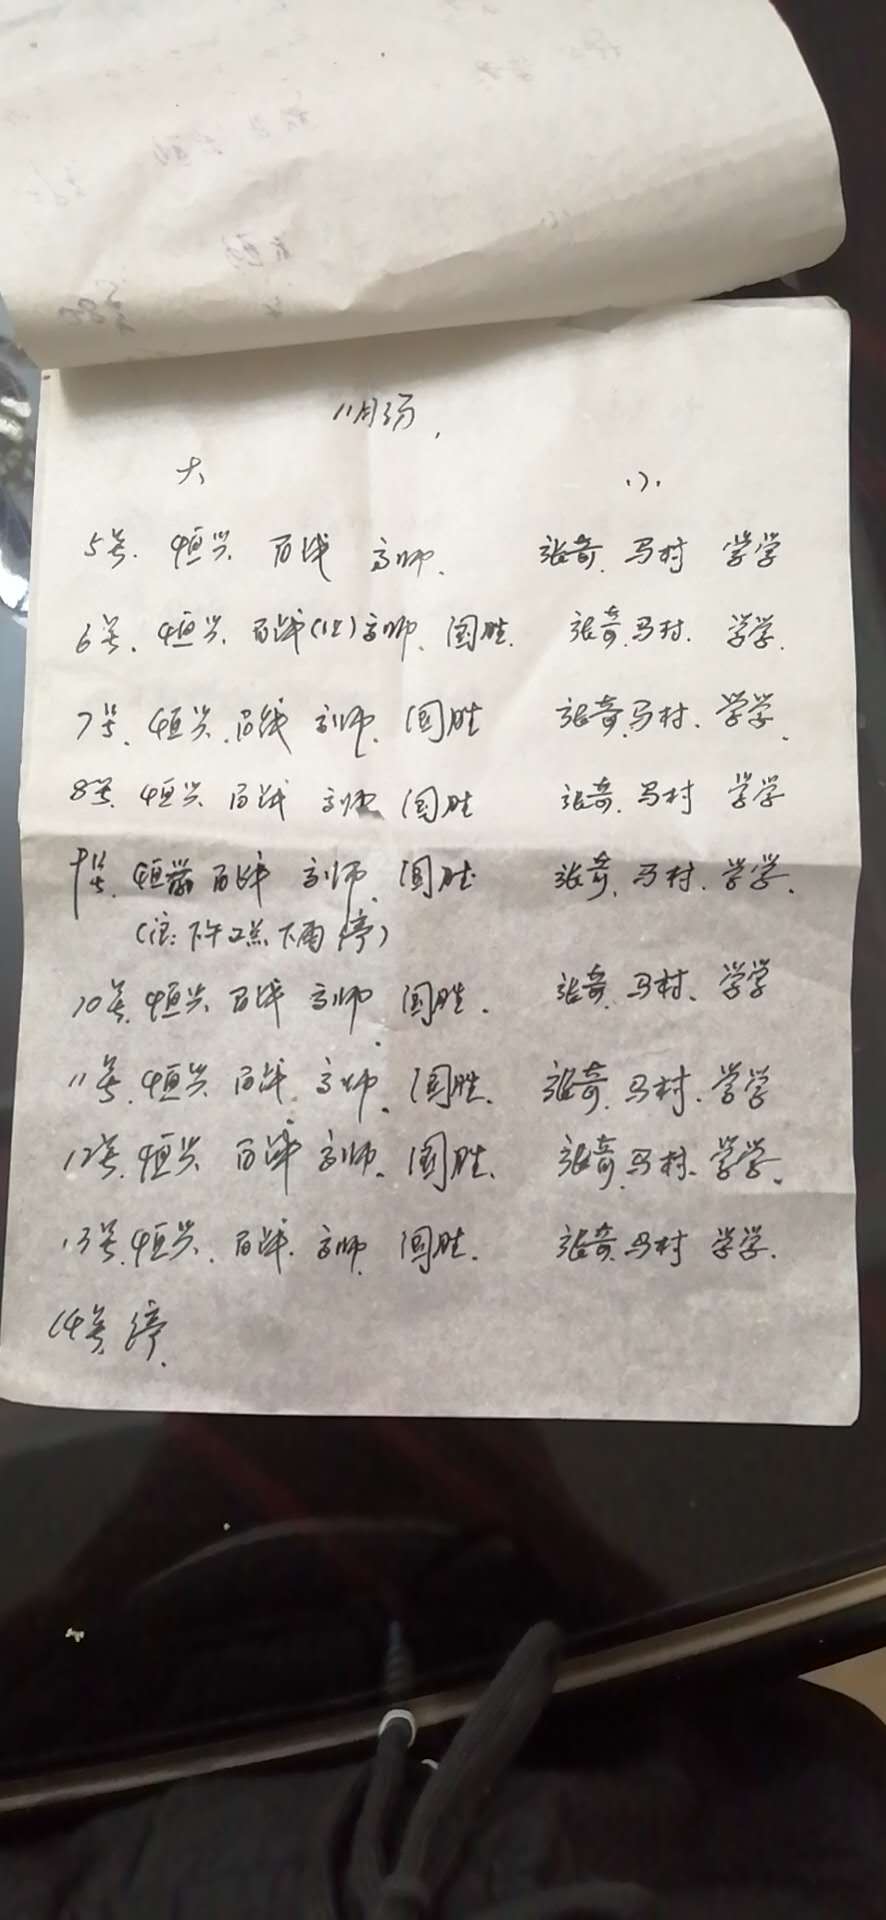 11月份,
大 小
5号. 恒兴 百战 高师. 张奇. 马村 学学
6号. 恒兴. 百战 高师. 国胜. 张奇. 马村. 学学.
7号. 恒兴. 百战 高师. 国胜 张奇. 马村. 学学.
8号. 恒兴 百战 高师 国胜 张奇. 马村 学学
9号. 恒兴 百战 高师. 国胜 张奇. 马村. 学学.
(注: 下午2点下雨停)
10号. 恒兴 百战 高师 国胜. 张奇. 马村. 学学
11号. 恒兴 百战. 高师. 国胜. 张奇. 马村. 学学
12号. 恒兴 百战 高师. 国胜. 张奇. 马村. 学学.
13号. 恒兴. 百战. 高师. 国胜. 张奇. 马村 学学.
14号. 停.